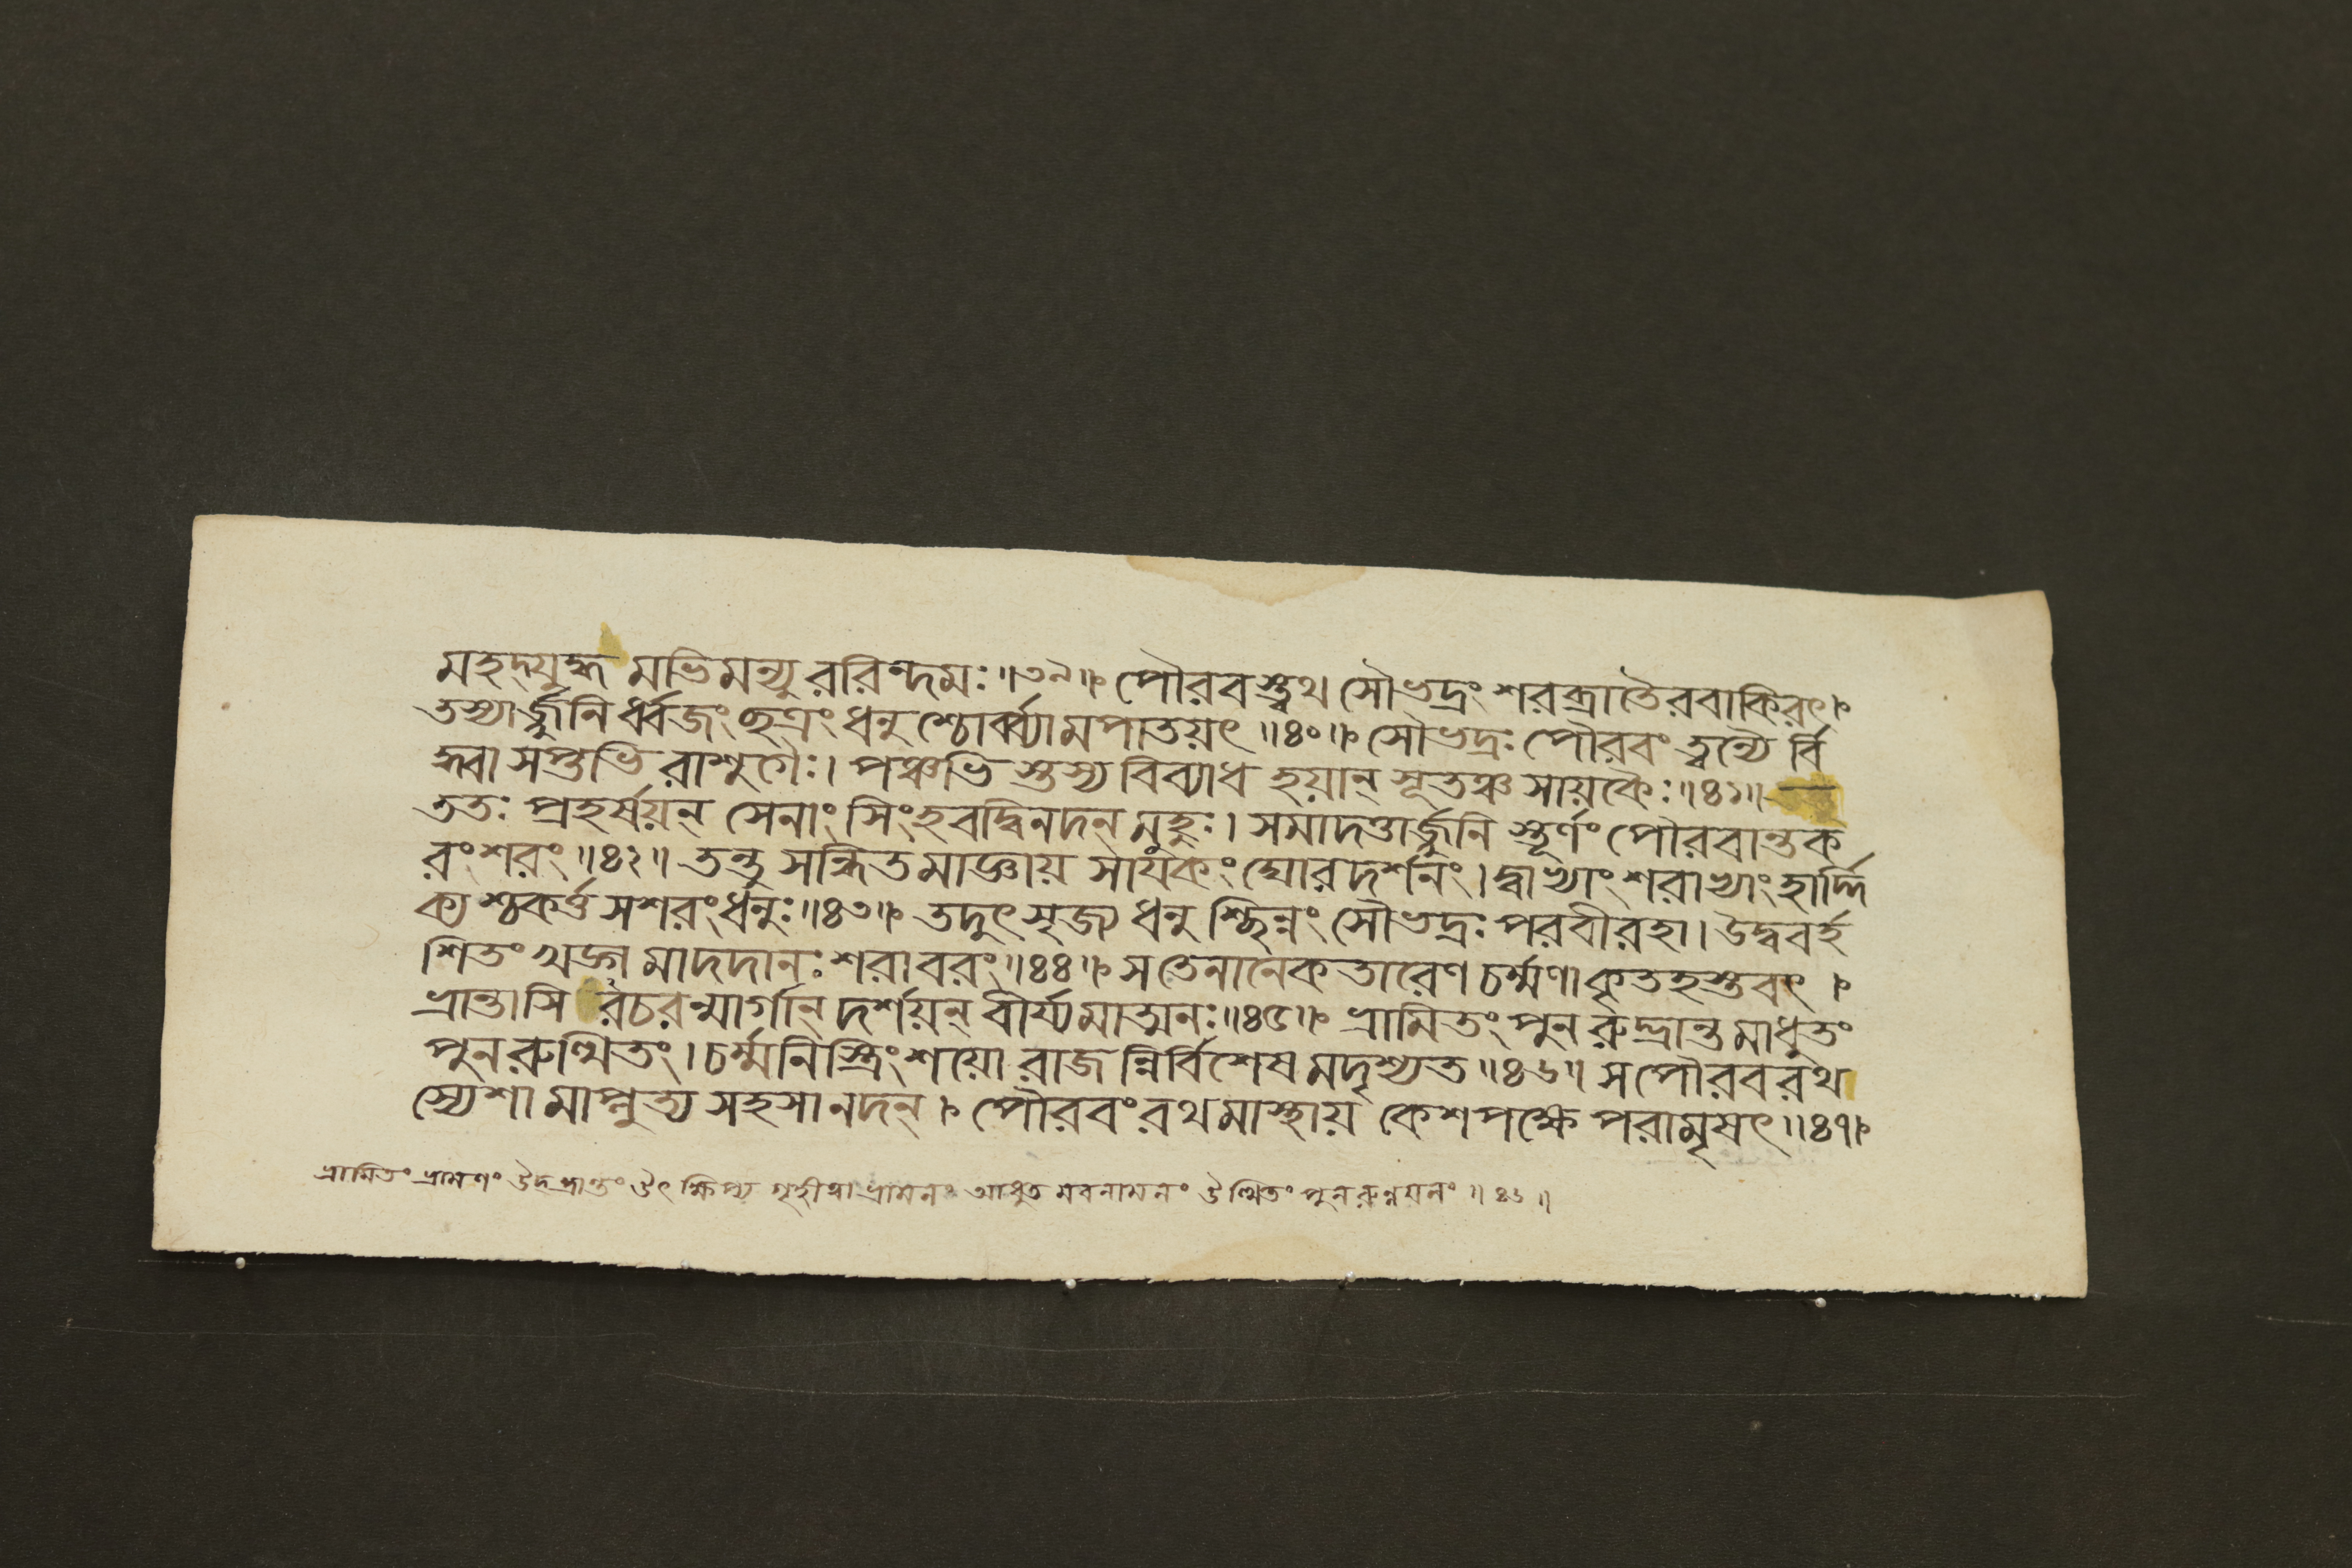 মহদ্যুদ্ধ মভিমন্যু ররিন্দমঃ॥৩৯॥ পৌরবস্ত্বথ সৌভদ্রং শরব্রাতৈরবাকিরৎ।
তস্যার্জ্জুনি র্ধ্বজং ছত্রং ধনু শ্চোর্ব্ব্যামপাতয়ৎ ॥৪০॥ সৌভদ্রঃ পৌরবং ত্বন্যৈ র্বি
দ্ধ্বা সপ্তভি রাশুগৈঃ। পঞ্চভি স্তস্য বিব্যাধ হয়ান্ সূতঞ্চ সায়কৈঃ॥৪১॥
ততঃ প্রহর্ষয়ন্ সেনাং সিংহবদ্বিনদন্ মুহুঃ। সমাদত্তার্জ্জুনি স্তূর্ণং পৌরবান্তক
রং শরং॥৪২॥ তন্তু সন্ধিতমাজ্ঞায় সায়কং ঘোরদর্শনং। দ্বাভ্যাং শরাভ্যাং হার্দ্দি
ক্য শ্চকর্ত্ত সশরং ধনুঃ॥৪৩॥ তদুৎসৃজ্য ধনু শ্ছিন্নং সৌভদ্রঃ পরবীরহা। উদ্ববর্হ
শিতং খড়্গ মাদদানঃ শরাবরং॥৪৪॥ স তেনানেকতারেণ চর্ম্মণা কৃতহস্তবৎ।
ভ্রান্তাসি রচরন্মার্গান্ দর্শয়ন্ বীর্য্যমাত্মনঃ॥৪৫॥ ভ্রামিতং পুন রুদ্ভ্রান্ত মাধুতং
পুনরুত্থিতং। চর্ম্মনিস্ত্রিংশয়ো রাজ ন্নির্বিশেষ মদৃশ্যত ॥৪৬॥ স পৌরবরথ
স্যেশা মাপ্লুত্য সহসা নদন্। পৌরবং রথমাস্থায় কেশপক্ষে পরামৃষৎ॥৪৭।
ভ্রামিতং ভ্রামণং উদ্ভ্রান্তং উৎক্ষিপ্য গৃহীত্বা ভ্রামনং আধুত মবনামনং উত্থিতং পুনরুন্নয়নং ॥৪৬॥